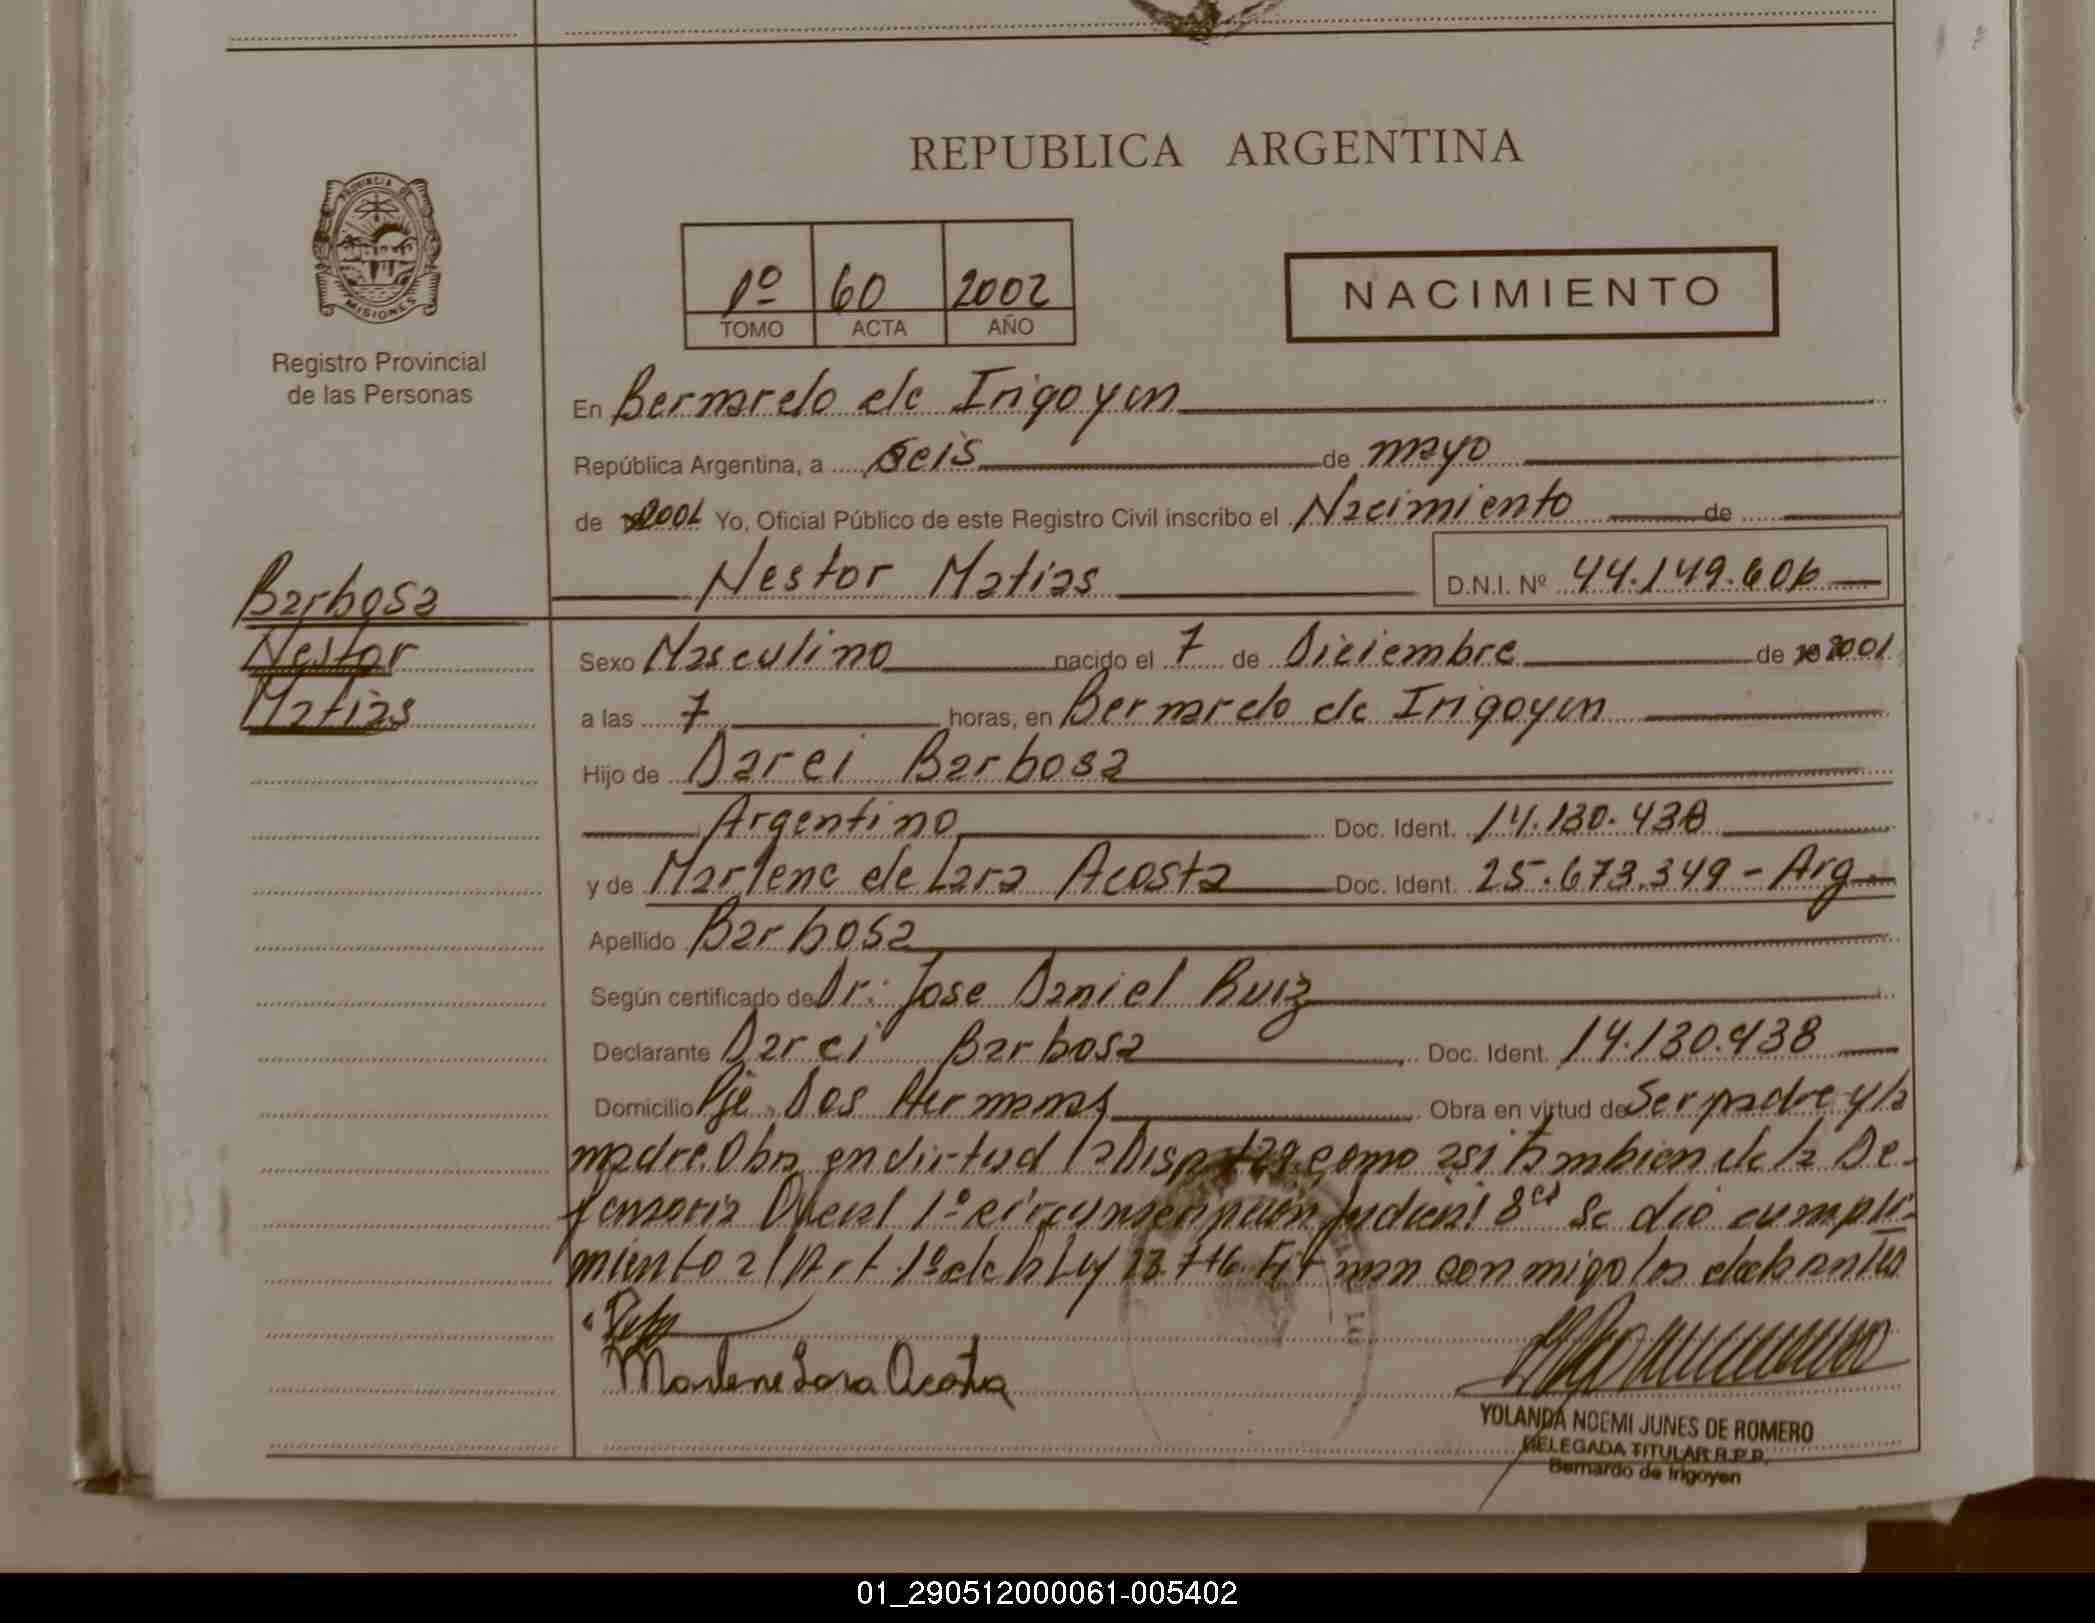 REPUBLICA ARGENTINA
PROVINCIA DE MISIONES
Registro Provincial
de las Personas
1º 60 2002
TOMO ACTA AÑO
NACIMIENTO
En Bernardo de Irigoyen
República Argentina, a seis de mayo
de 2002 Yo, Oficial Público de este Registro Civil inscribo el Nacimiento de
Nestor Matias D.N.I. Nº 44.149.606
Barbosa
Nestor
Matias
Sexo Masculino nacido el 7 de Diciembre de 2001
a las 7 horas, en Bernardo de Irigoyen
Hijo de Darci Barbosa
Argentino Doc. Ident. 14.130.438
y de Marlene de Lara Acosta Doc. Ident. 25.673.349 - Arg.
Apellido Barbosa
Según certificado de Dr. Jose Daniel Ruiz
Declarante Darci Barbosa Doc. Ident. 14.130.438
Domicilio Pje Dos Hermanas Obra en virtud de Ser padre y la
madre. Obra en virtud la como asi tambien de la De-
fensoria Oficial 1º circunscripcion judicial Se dio cumpli-
miento al Art. 1º de la Ley Firman conmigo los
Marlene Lara Acosta
YOLANDA NOEMI JUNES DE ROMERO
DELEGADA TITULAR R.P.P.
Bernardo de Irigoyen
01_290512000061-005402